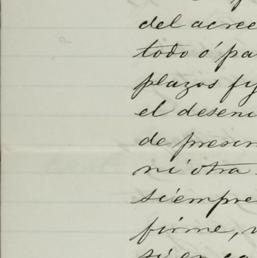 del acree
todo ó pa
plazos fij
el desem
de prescr
ni otra
siempre
firme, v
si en ca